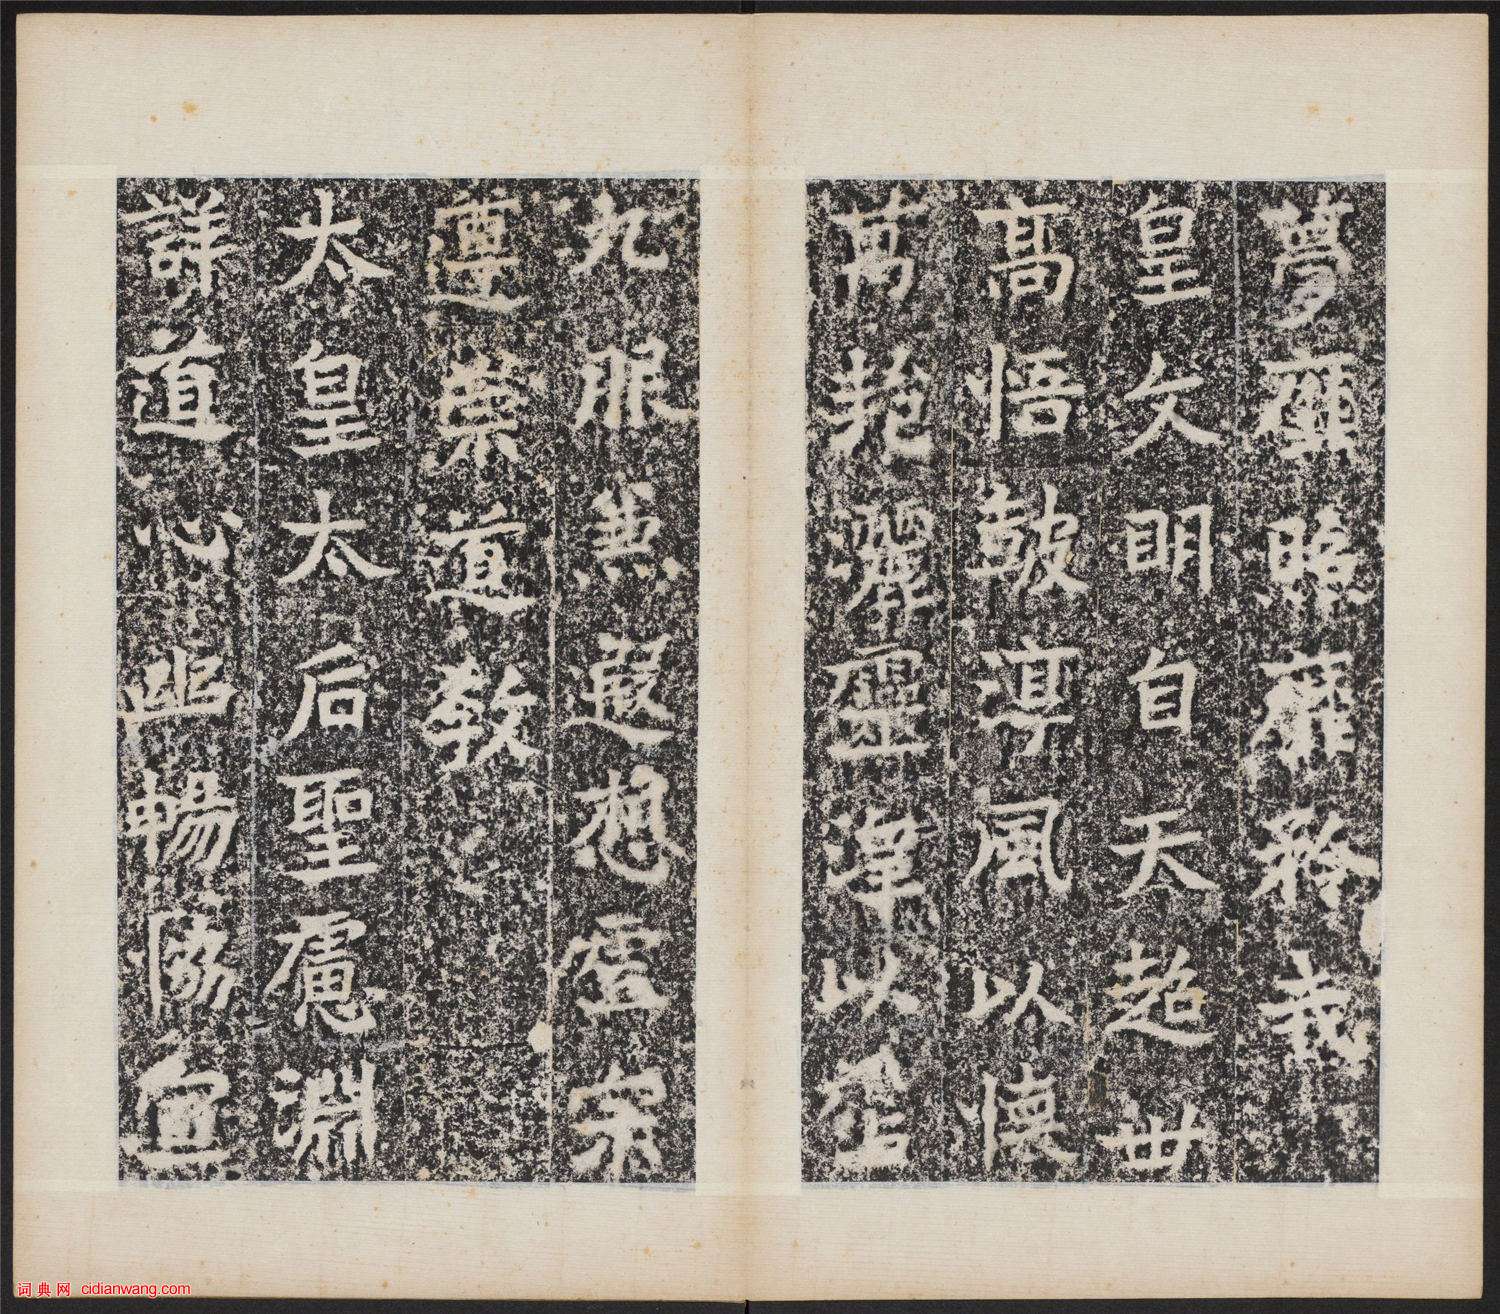 夢照我
皇文明自天超世
高悟鼓淳風以懷
萬邦灑靈澤以霑
九服兼遐想虛宗
遵崇道教
太皇太后聖慮淵
詳道心幽暢協宣
词典网 cidianwang.com